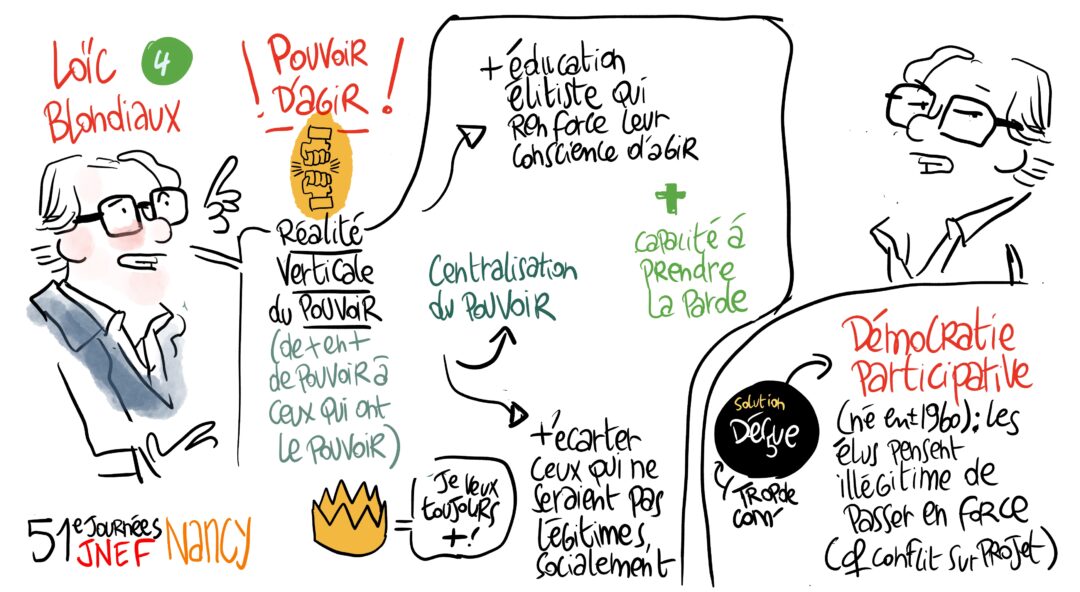 Loïc
Blondiaux
4
! POUVOIR
D'AGIR !
Réalité
Verticale
du POUVOIR
(de + en +
de POUVOIR à
ceux qui ont
le POUVOIR)
+ éducation
élitiste qui
renforce leur
conscience d'agir
+
capacité à
prendre
la parole
Centralisation
du POUVOIR
+ écarter
ceux qui ne
seraient pas
légitimes,
socialement
=
Je veux
toujours
+!
51e JOURNÉES
JNEF
Nancy
Solution
Déçue
TROP de
com'
Démocratie
Participative
(né en ± 1960) ; les
élus pensent
illégitime de
passer en force
(cf conflit sur PROJET)